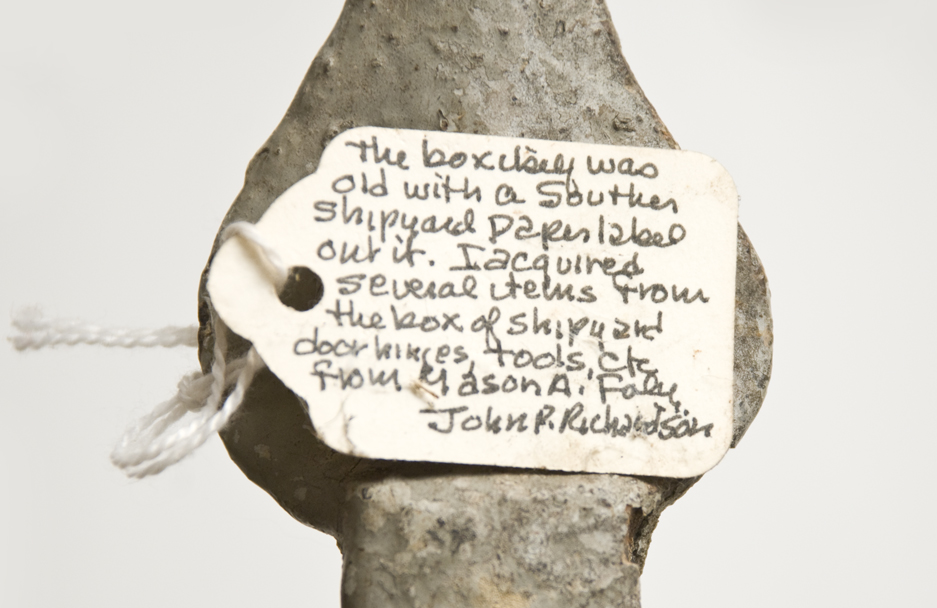 the box itself was
old with a Souther
Shipyard Paper label
out it. I acquired
several items from
the box of shipyard
door hinges, tools, etc
from Mason A. Foley
John P. Richardson